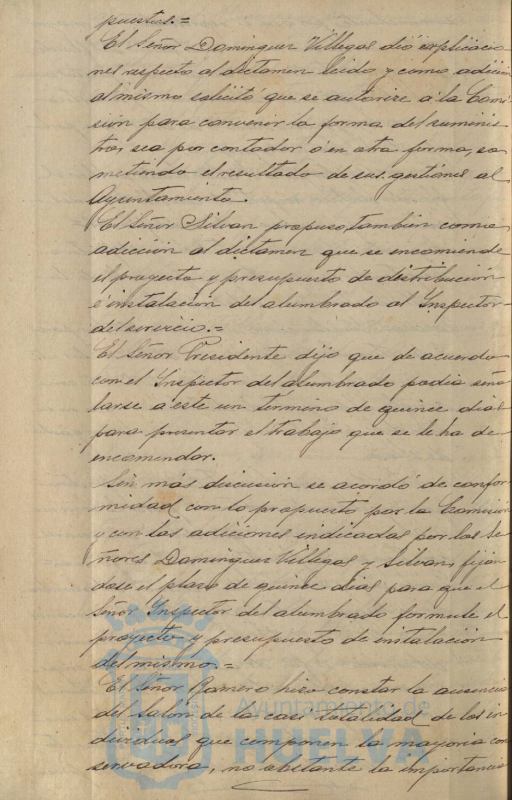 puestas.=
El Señor Dominguez Villegas dió explicacio-
nes respecto al dictamen leido y como adición
al mismo solicitó que se autorice a la Comi-
sión para convenir la forma del suminis-
tro, sea por contador ó en otra forma, so-
metiendo el resultado de sus gestiones al
Ayuntamiento.
El Señor Silvan propuso, tambien como
adición al dictamen que se encomiende
el proyecto y presupuesto de distribución
é instalación del alumbrado al Inspector
del servicio.=
El Señor Presidente dijo que de acuerdo
con el Inspector del alumbrado podia seña-
larse a este un termino de quince dias
para presentar el trabajo que se le ha de
encomendar.
Sin más discusión se acordó de confor-
midad con lo propuesto por la Comisión
y con las adiciones indicadas por los Se-
ñores Dominguez Villegas y Silvan, fijan-
dose el plazo de quince dias para que el
Señor Inspector del alumbrado formule el
proyecto y presupuesto de instalación
del mismo.=
El Señor Romero hizo constar la ausencia
del salón de la casi totalidad de los in-
dividuos que componen la mayoria con-
servadora, no obstante la importancia
Ayuntamiento de
HUELVA